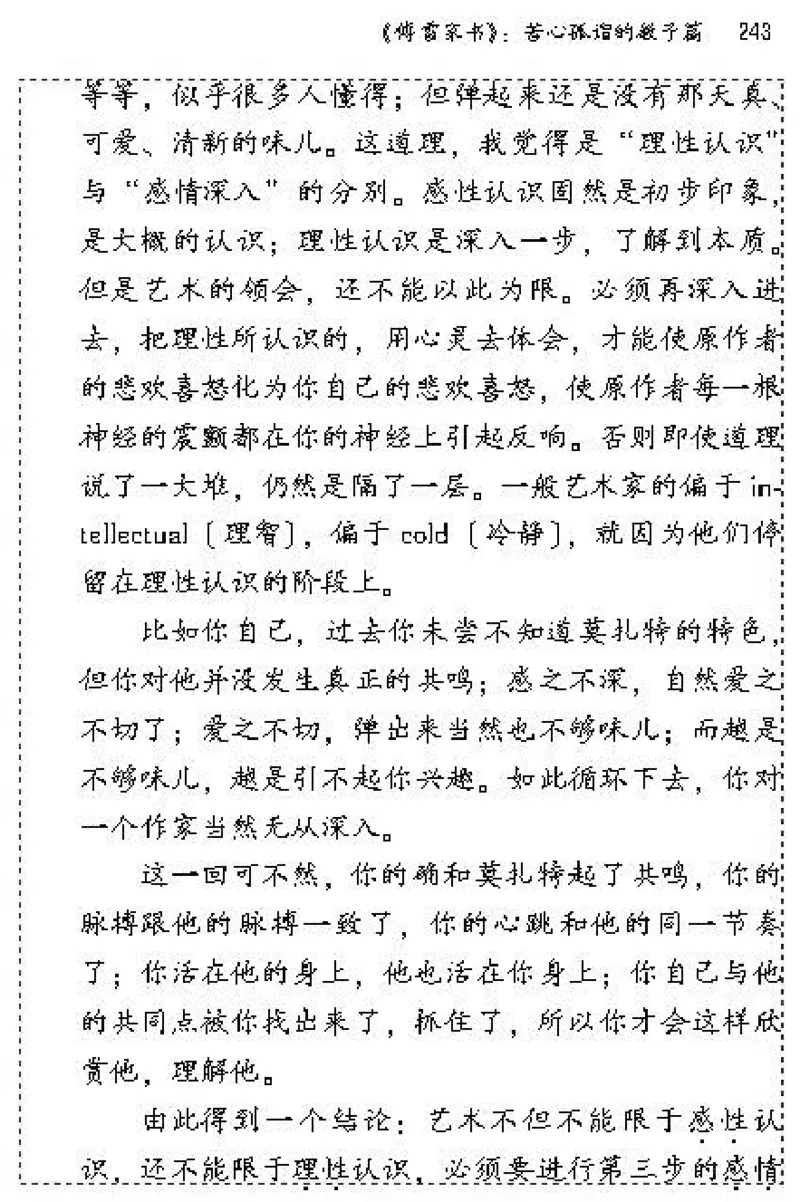 《傅雷家书》：苦心孤诣的教子篇 243
等等，似乎很多人懂得；但弹起来还是没有那天真、
可爱、清新的味儿。这道理，我觉得是“理性认识”
与“感情深入”的分别。感性认识固然是初步印象，
是大概的认识；理性认识是深入一步，了解到本质。
但是艺术的领会，还不能以此为限。必须再深入进
去，把理性所认识的，用心灵去体会，才能使原作者
的悲欢喜怒化为你自己的悲欢喜怒，使原作者每一根
神经的震颤都在你的神经上引起反响。否则即使道理
说了一大堆，仍然是隔了一层。一般艺术家的偏于 in-
tellectual〔理智〕，偏于 cold〔冷静〕，就因为他们停
留在理性认识的阶段上。
比如你自己，过去你未尝不知道莫扎特的特色，
但你对他并没发生真正的共鸣；感之不深，自然爱之
不切了；爱之不切，弹出来当然也不够味儿；而越是
不够味儿，越是引不起你兴趣。如此循环下去，你对
一个作家当然无从深入。
这一回可不然，你的确和莫扎特起了共鸣，你的
脉搏跟他的脉搏一致了，你的心跳和他的同一节奏
了；你活在他的身上，他也活在你身上；你自己与他
的共同点被你找出来了，抓住了，所以你才会这样欣
赏他，理解他。
由此得到一个结论：艺术不但不能限于感性认
识，还不能限于理性认识，必须要进行第三步的感情